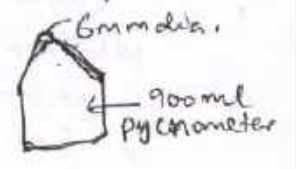 6mm dia.
900 ml
pycnometer